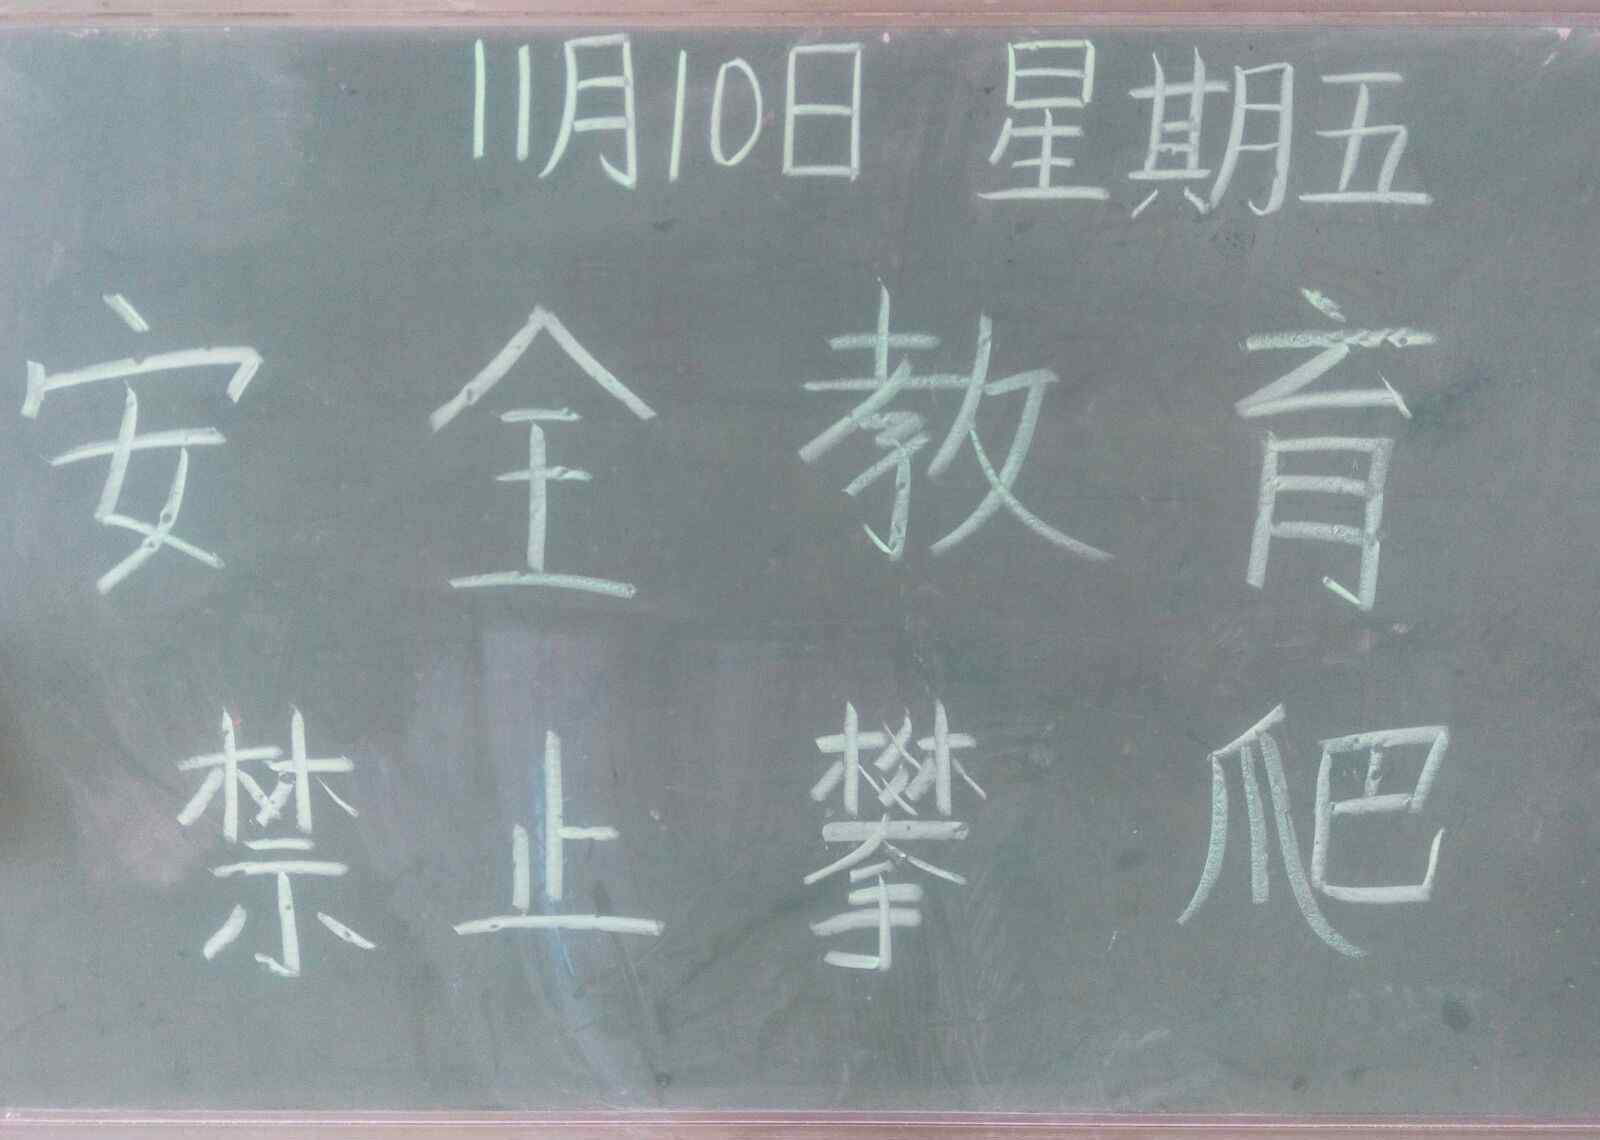 11月10日 星期五
安全教育
禁止攀爬